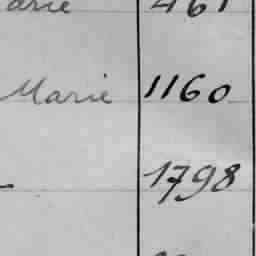 arie 461
Marie 1160
1798